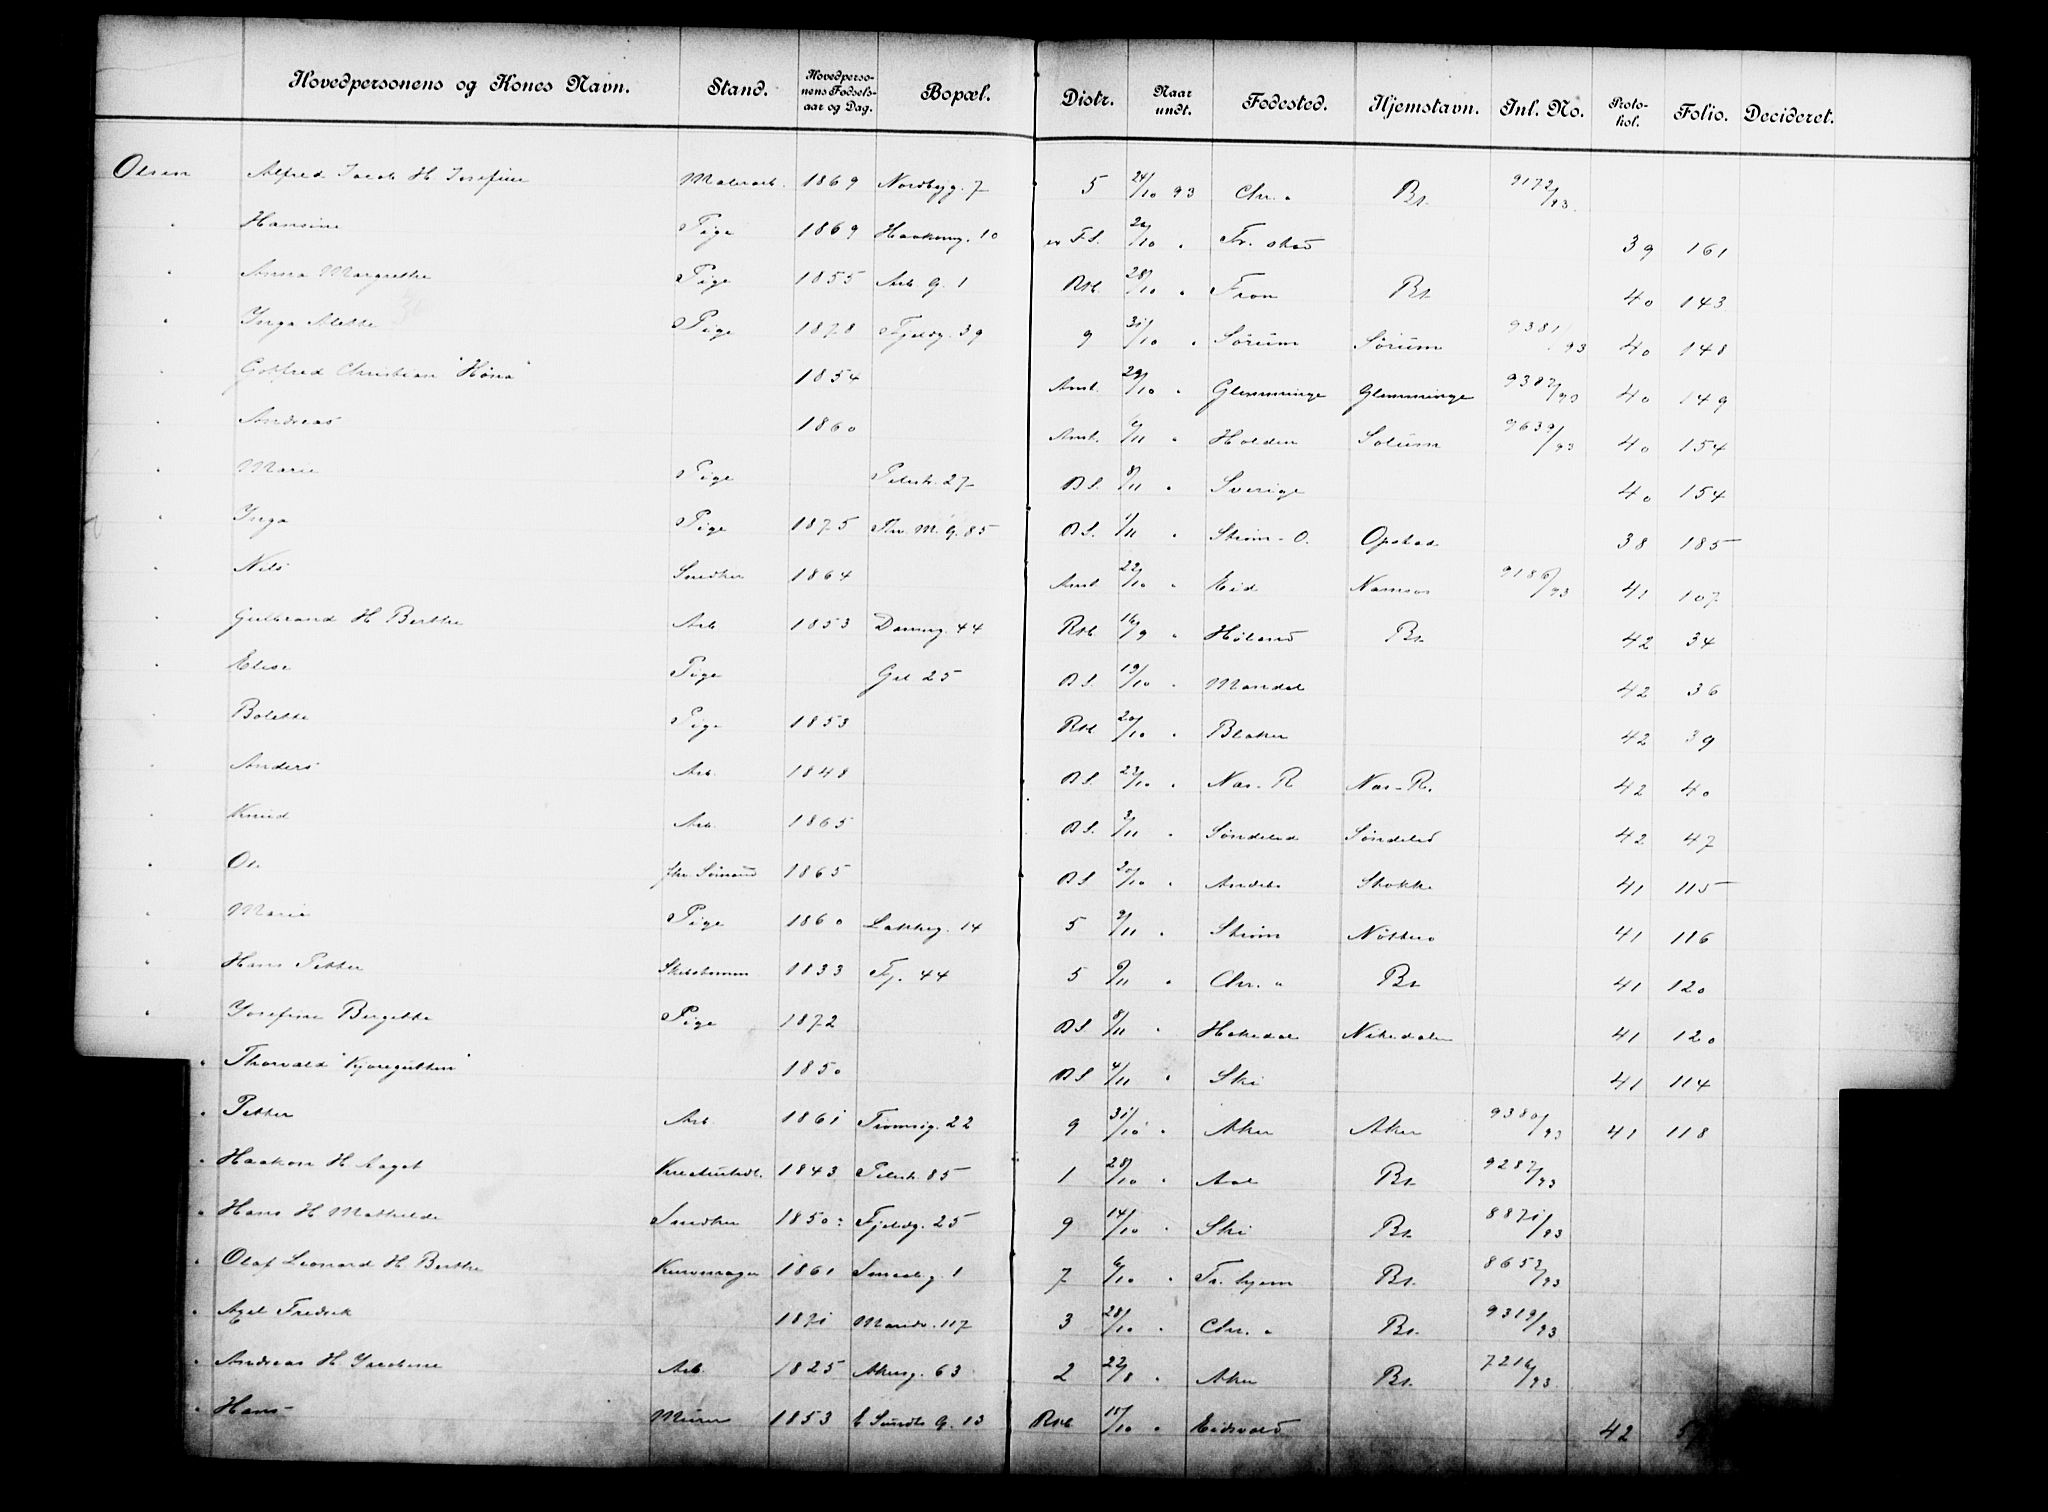 Hovedpersonens og Kones Navn. Stand. Hovedperso-nens Fødsels-aar og Dag. Bopæl. Distr. Naar undt. Fødested. Hjemstavn. Inl. No. Proto-kol. Folio. Decideret.
Olsen Alfred Jacob H. Josefine Malerarb. 1869 Nordbyg. 7 5 24/10 93 Chr.a Bt. 9172/93
" Hansine Pige 1869 Haakong. 10 F.S. /10 " Fr.stad 39 161
" Anna Margrethe Pige 1855 Arb. G. 1 Rst. 28/10 " Fron Bt. 40 143
" Inga Alette Pige 1878 Fjeldg. 39 9 31/10 " Sørum Sørum 9381/93 40 148
" Gotfred Christian "Høna" 1854 Amt. 29/10 " Glemminge Glemminge 9387/93 40 149
" Andreas 1860 Amt. 6/11 " Holden Solum 9639/93 40 154
" Marie Pige Pilestr. 27 B.S. 8/11 " Sverige 40 154
" Inga Pige 1875 Thv. M. G. 85 B.S. 1/11 " Strøm-O. Opstad 38 185
" Nils Snedker 1864 Amt. 22/10 " Eid Namsos 9186/93 41 107
" Gulbrand H. Berthe Arb. 1853 Dammg. 44 Rst. 16/9 " Høland Bt. 42 34
" Elise Pige Gsl 25 B.S. 19/10 " Mandal 42 36
" Bolette Pige 1853 Rst. 20/10 " Blaker 42 39
" Anders Arb. 1848 B.S. 23/10 " Næs-R. Næs-R. 42 40
" Knud Arb. 1865 B.S. 3/11 " Søndeled Søndeled 42 47
" Ole fhv. Sømand 1865 B.S. 20/10 " Andebo Stokke 41 115
" Maria Pige 1860 Lakkeg. 14 5 2/11 " Strøm Nøtterø 41 116
" Hans Petter Skibstømm. 1833 Fj. 44 5 6/11 " Chr.a Bt. 41 120
" Josefine Bergitte Pige 1872 B.S. 8/11 " Hakedal Nitedalen 41 120
" Thorvald "Kjøregutten" 1850 B.S. 4/11 " Ski 41 114
" Petter Arb. 1861 Tromsøg. 22 9 31/10 " Aker Aker 9380/93 41 118
" Haakon H. Aagot 1843 Pilestr. 85 1 28/10 " Aal Bt. 9287/93
" Hans H. Mathilde Snedker 1850 Fjeldg. 25 9 14/10 " Ski Bt. 8871/93
" Olaf Leonard H. Berthe Kurvmager 1861 Smedg. 1 7 6/10 " Tr.hjem Bt. 8652/93
" Axel Fredrik 1871 Maridv. 117 3 28/10 " Chr.a Bt. 9319/93
" Andreas H. Jacobine Arb. 1825 Akersg. 63 2 22/8 " Aker Bt. 7216/93
" Hans Murer 1853 E Sundts G. 13 Rst. 15/10 " Eidsvold 42